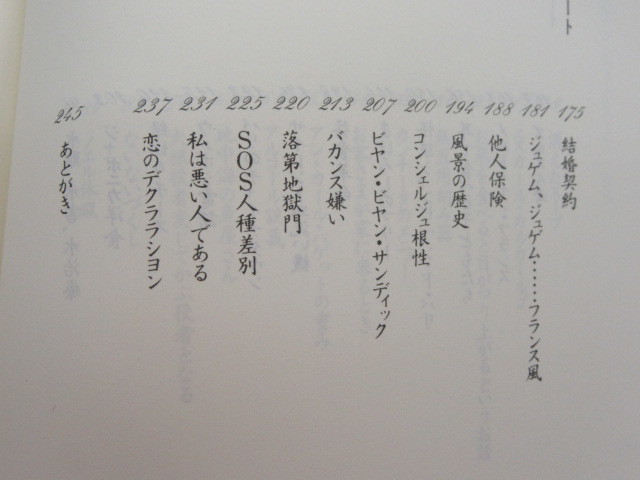 ート
175 結婚契約
181 ジュゲム、ジュゲム……フランス風
188 他人保険
194 風景の歴史
200 コンシェルジュ根性
207 ビヤン・ビヤン・サンディック
213 バカンス嫌い
220 落第地獄門
225 SOS人種差別
231 私は悪い人である
237 恋のデクララシヨン
245 あとがき